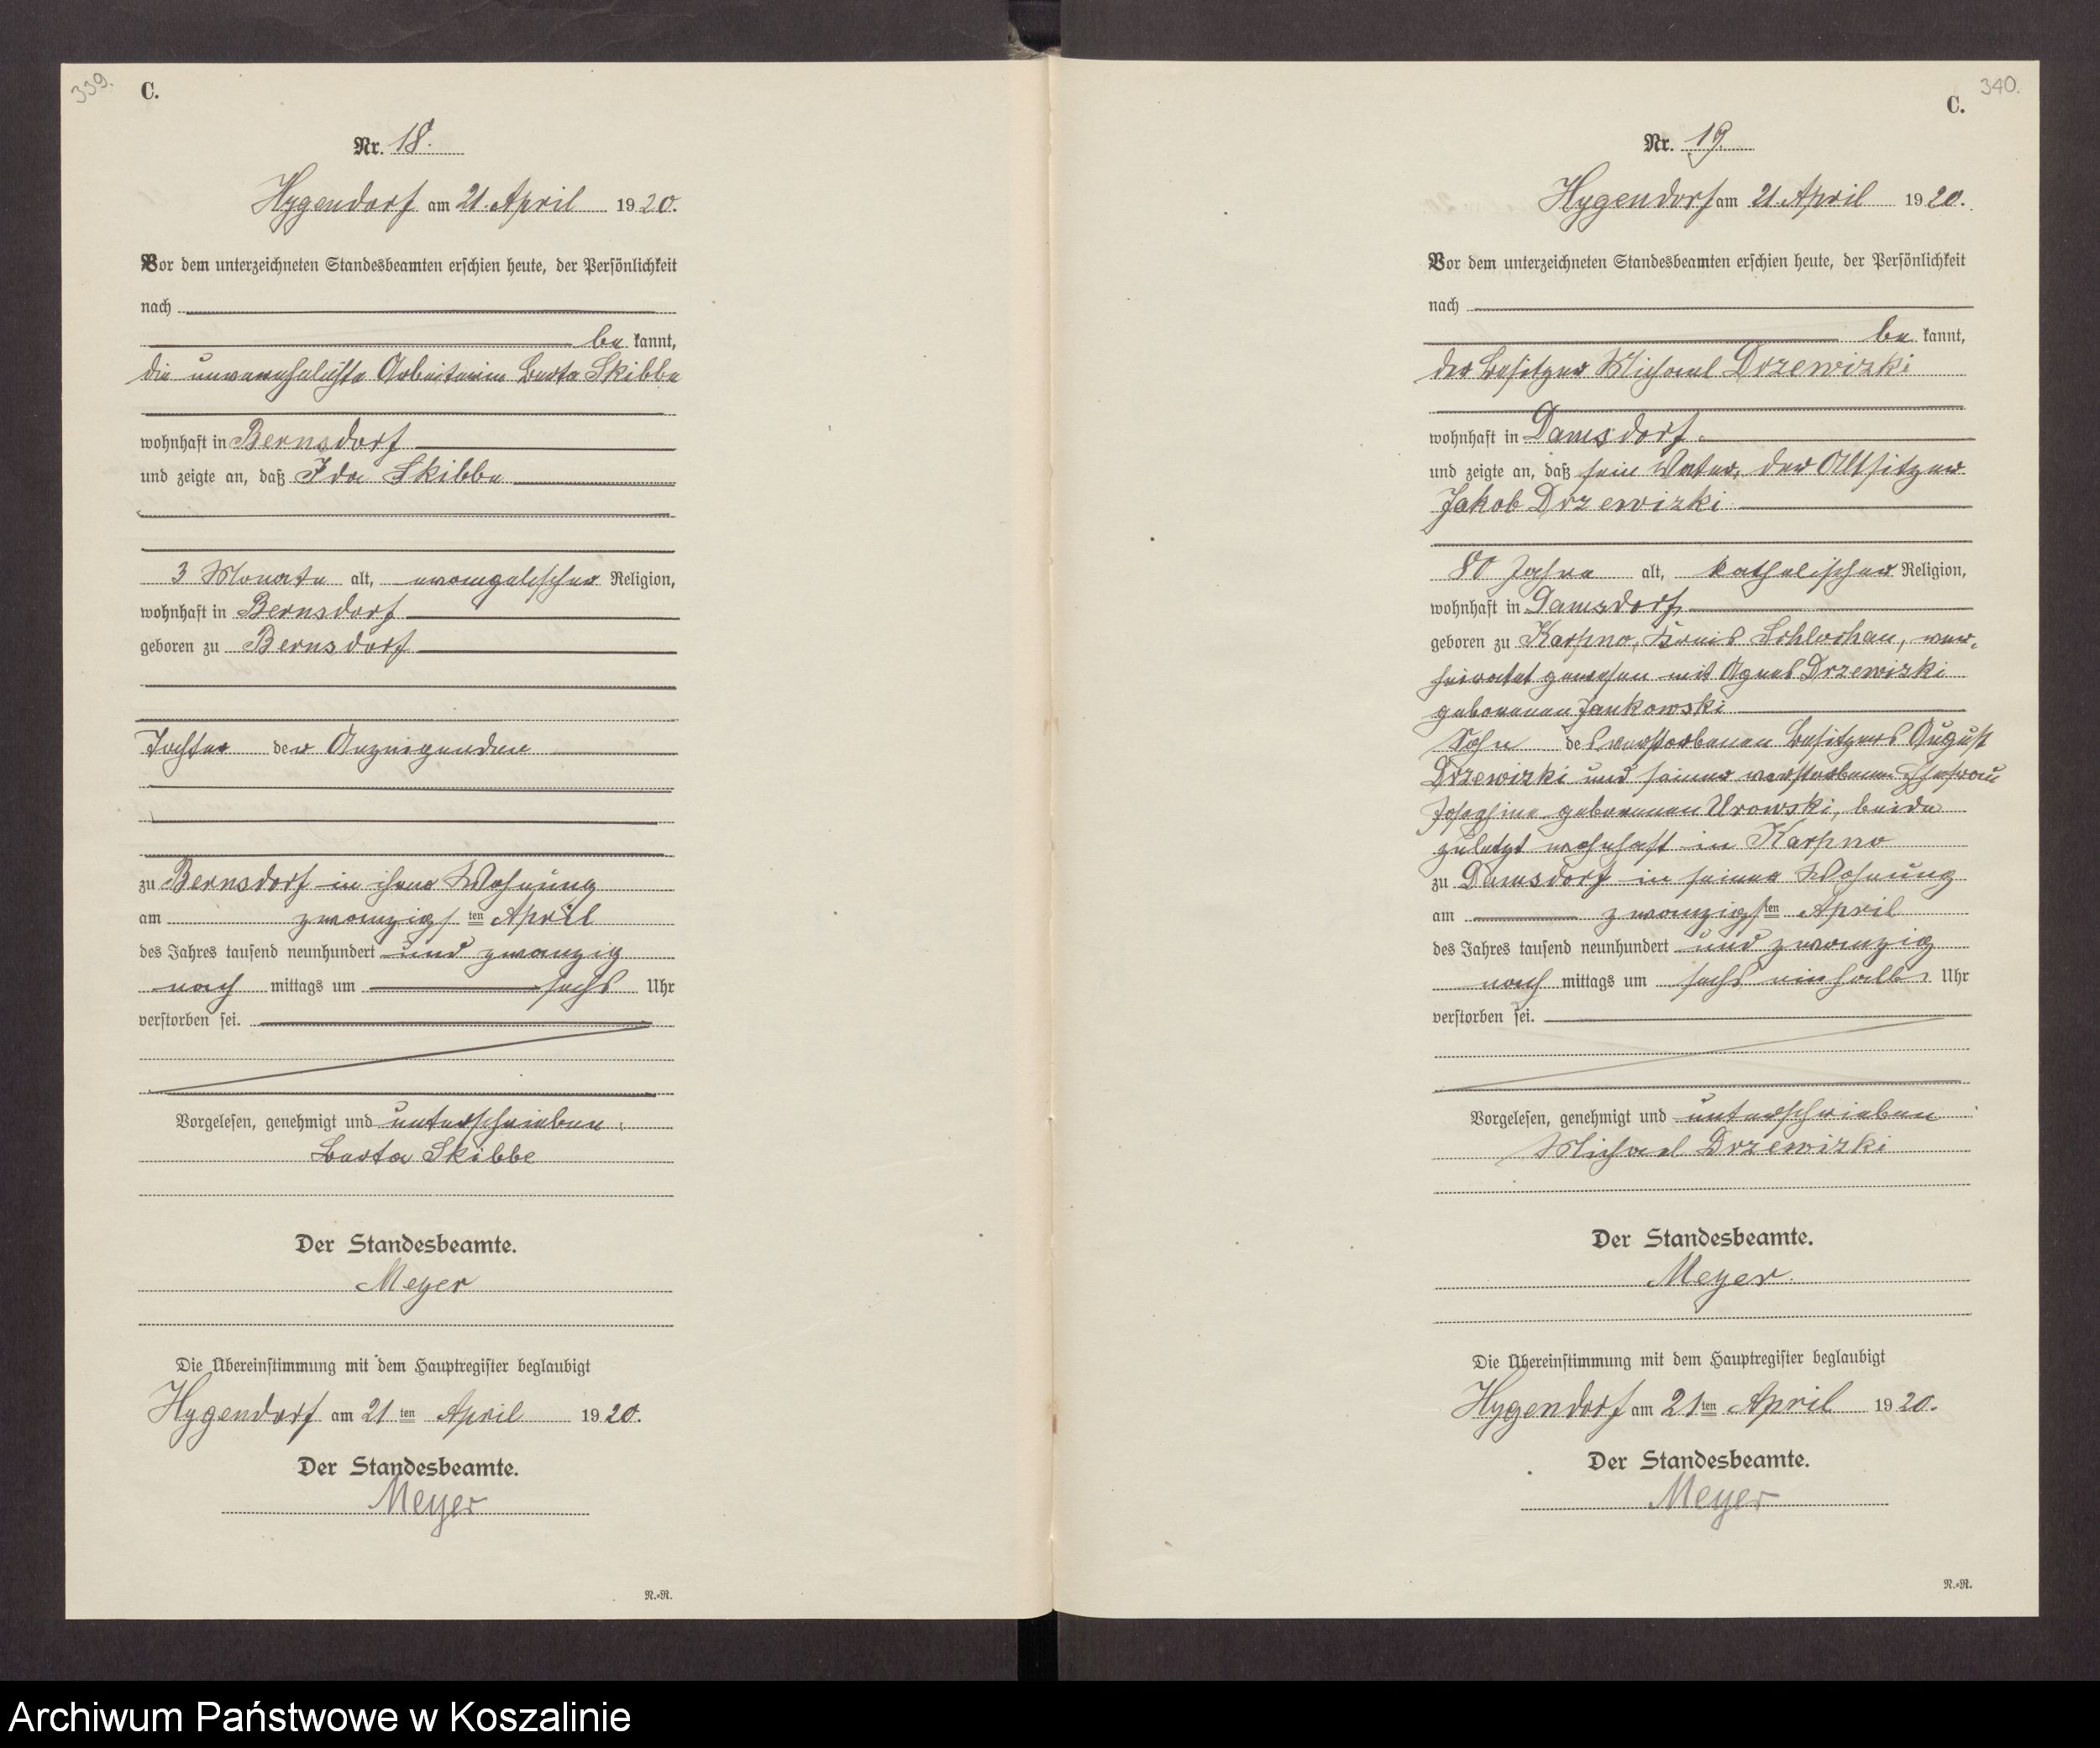 339.
C.
Nr. 18.
Hygendorf am 21. April 1920.
Vor dem unterzeichneten Standesbeamten erschien heute, der Persönlichkeit
nach
be kannt,
die unverehelichte Arbeiterin Berta Skibbe
wohnhaft in Bernsdorf
und zeigte an, daß Ida Skibbe
3 Monate alt, evangelischer Religion,
wohnhaft in Bernsdorf
geboren zu Bernsdorf
Tochter der Anzeigenden
zu Bernsdorf in ihrer Wohnung
am zwanzigsten April
des Jahres tausend neunhundert und zwanzig
nach mittags um sechs Uhr
verstorben sei.
Vorgelesen, genehmigt und unterschrieben.
Berta Skibbe
Der Standesbeamte.
Meyer
Die Übereinstimmung mit dem Hauptregister beglaubigt
Hygendorf am 21 ten April 1920.
Der Standesbeamte.
Meyer
N.=R.
340.
C.
Nr. 19.
Hygendorf am 21. April 1920.
Vor dem unterzeichneten Standesbeamten erschien heute, der Persönlichkeit
nach
be kannt,
der Besitzer Michael Drzewizki
wohnhaft in Damsdorf
und zeigte an, daß sein Vater, der Altsitzer
Jakob Drzewizki
80 Jahre alt, katholischer Religion,
wohnhaft in Damsdorf
geboren zu Karpno, Kreis Schlochau, ver-
heiratet gewesen mit Agnes Drzewizki
geborenen Jankowski
Sohn des verstorbenen Besitzers August
Drzewizki und seiner verstorbenen Ehefrau
Josephine geborenen Urowski, beide
zuletzt wohnhaft in Karpno
zu Damsdorf in seiner Wohnung
am zwanzigsten April
des Jahres tausend neunhundert und zwanzig
nach mittags um sechs einhalb Uhr
verstorben sei.
Vorgelesen, genehmigt und unterschrieben
Michael Drzewizki
Der Standesbeamte.
Meyer.
Die Übereinstimmung mit dem Hauptregister beglaubigt
Hygendorf am 21 ten April 1920.
Der Standesbeamte.
Meyer
N.=R.
Archiwum Państwowe w Koszalinie